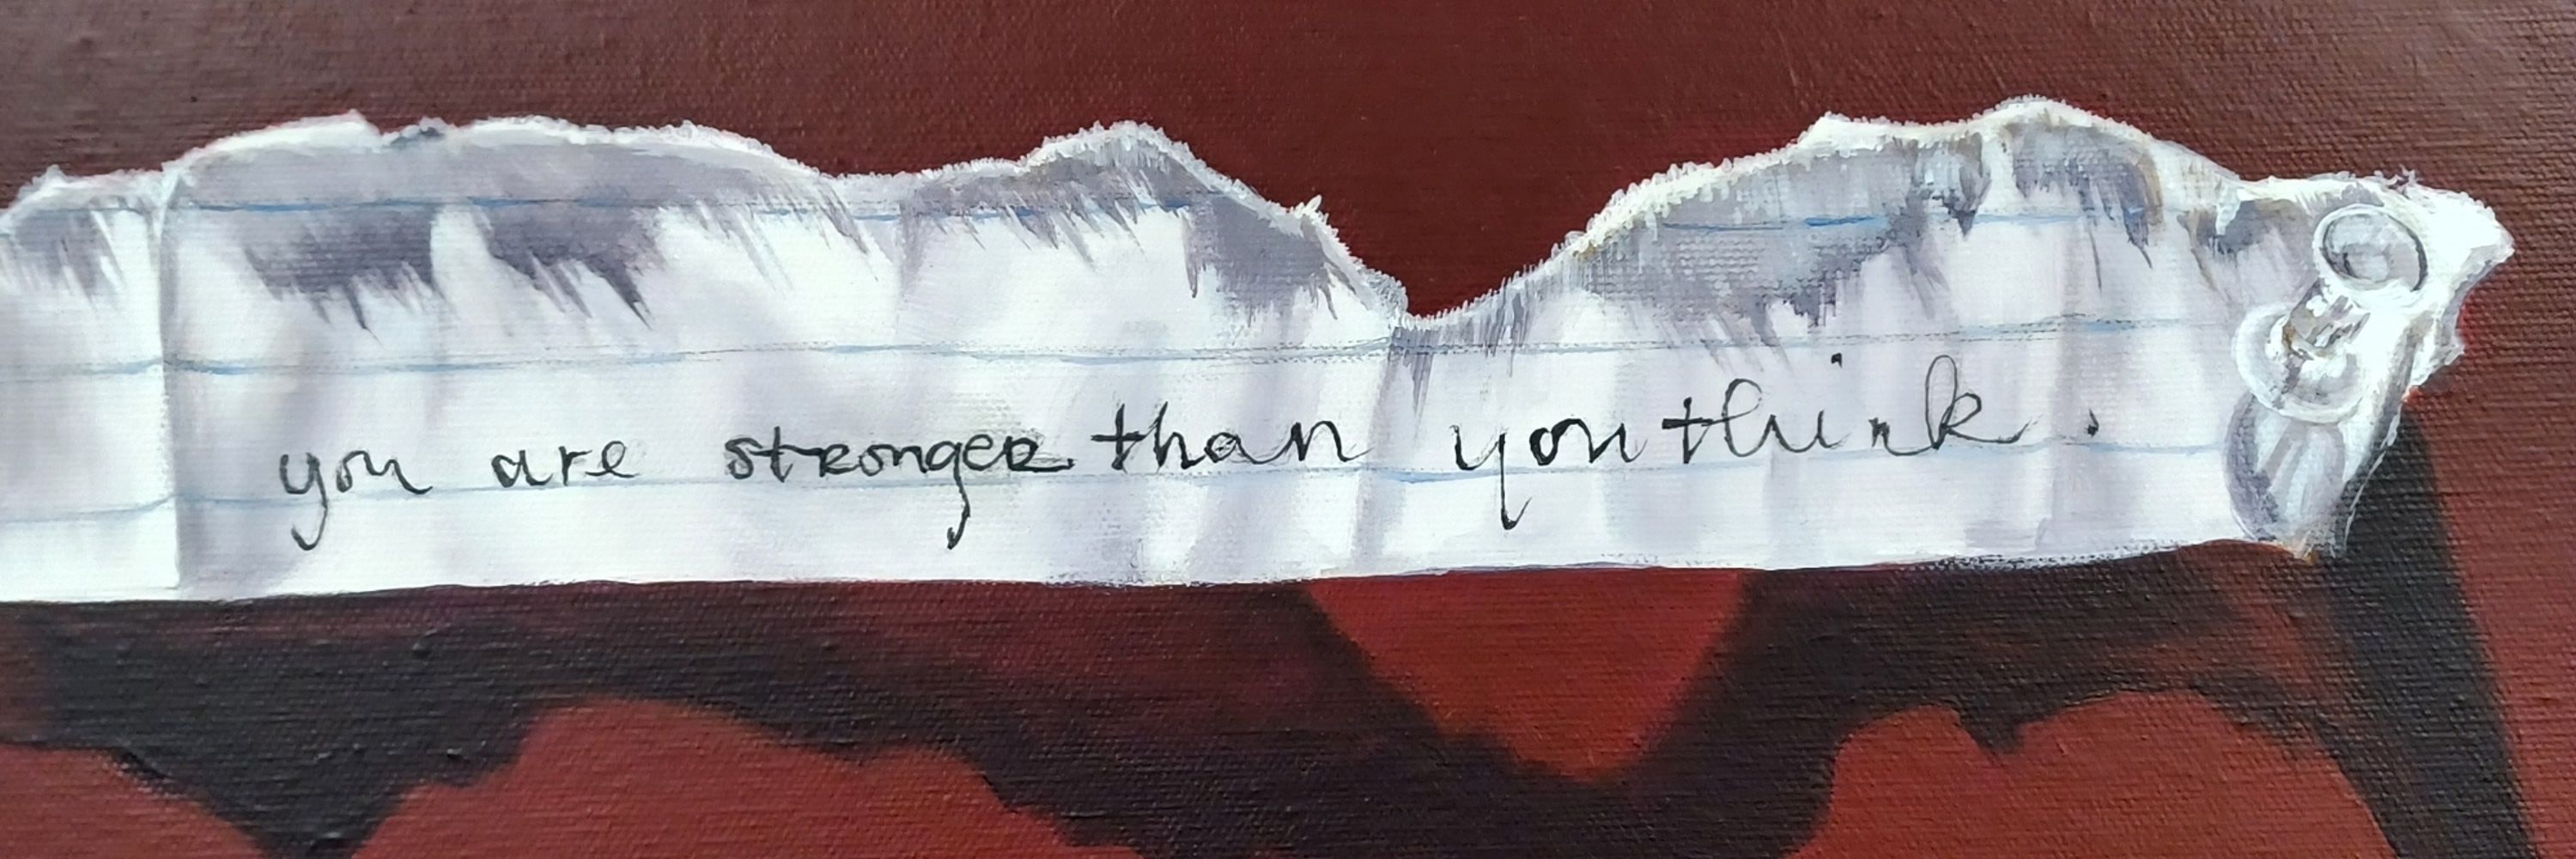 you are stronger than you think.